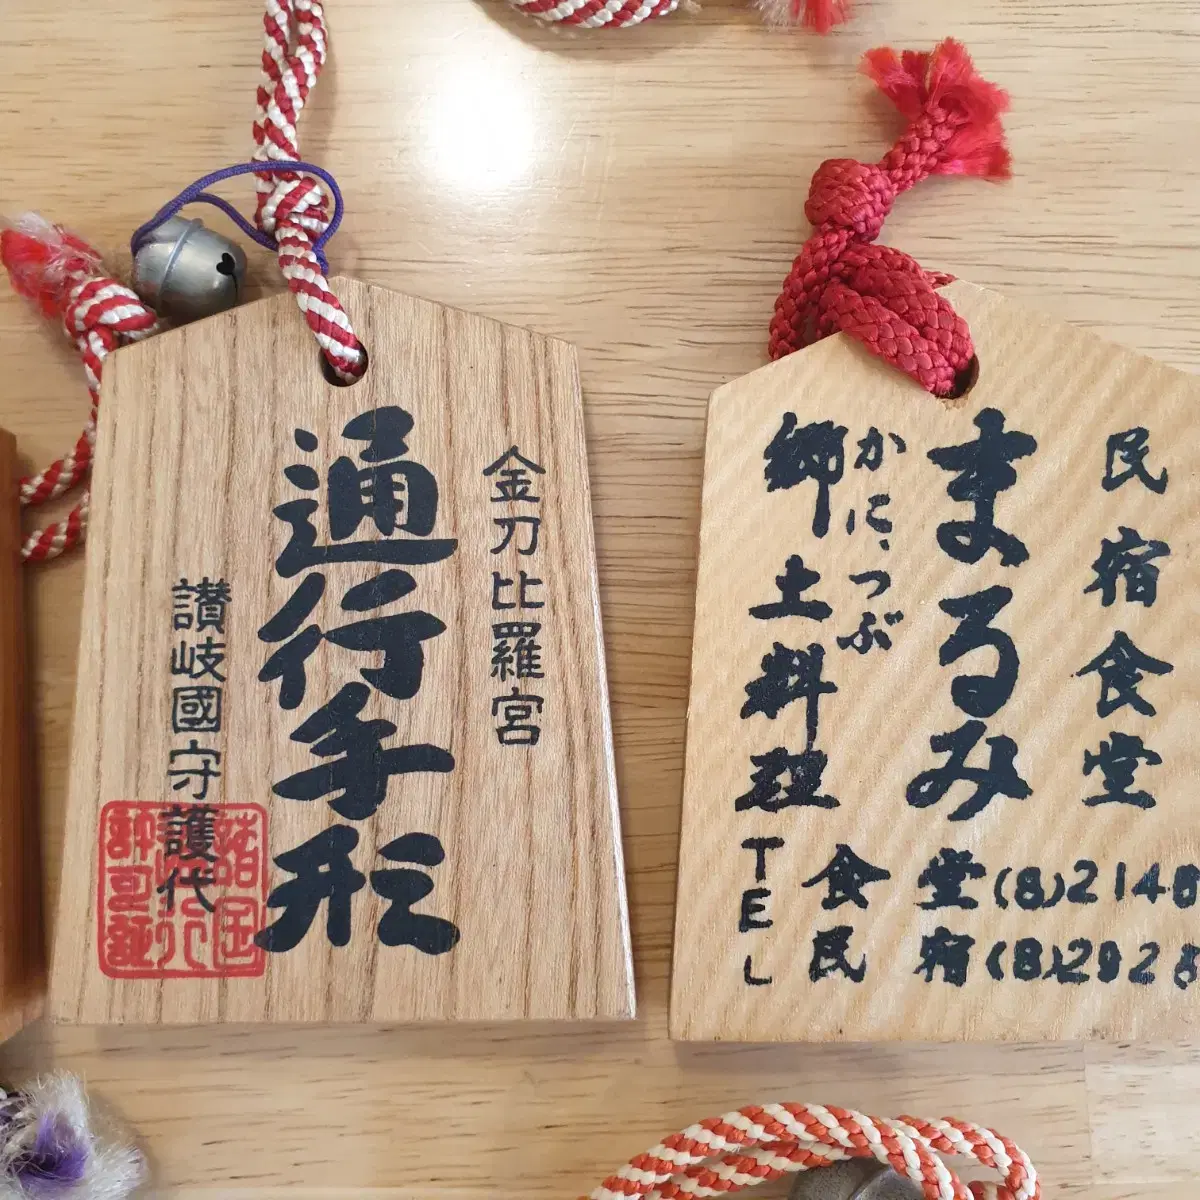 金刀比羅宮
通行手形
讃岐國守護代
民宿食堂
まるみ
かに、つぶ
郷土料理
TEL
食堂(8)2148
民宿(8)2928